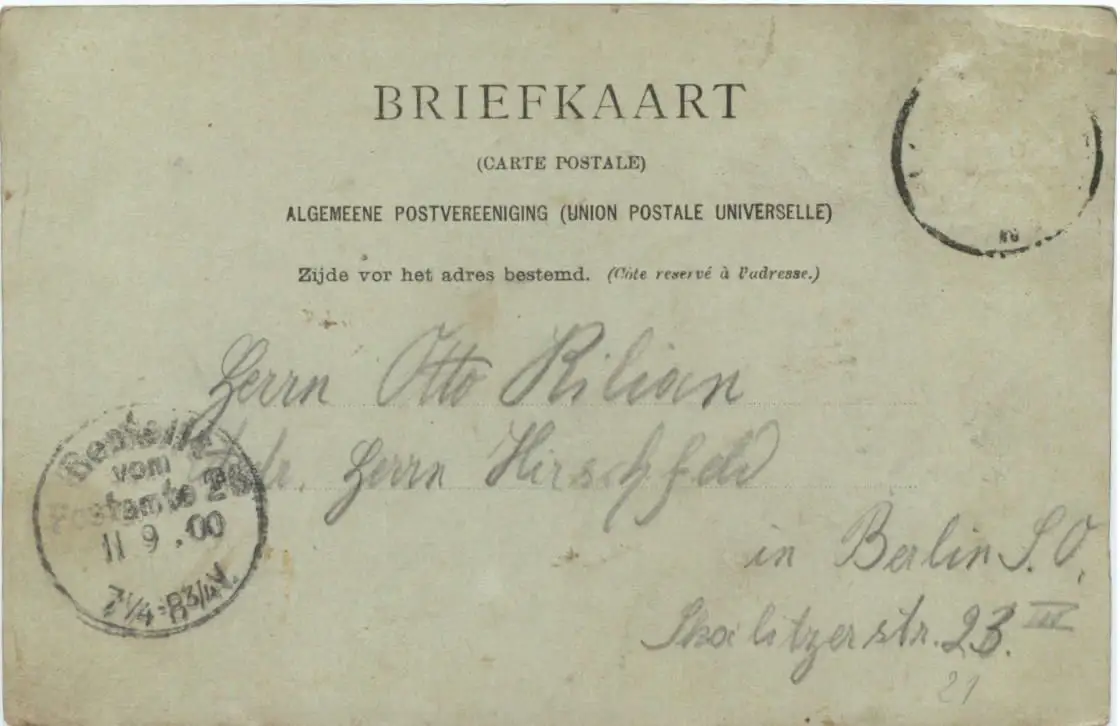 BRIEFKAART
(CARTE POSTALE)
ALGEMEENE POSTVEREENIGING (UNION POSTALE UNIVERSELLE)
Zijde vor het adres bestemd. (Côte reservé à l'adresse.)
Herrn Otto Kilian
Herrn Hirschfeld
in Berlin S.O.
Skalitzerstr. 23 III
21
Bestellt
vom
Postamte
11 9 .00
7 1/4-8 3/4 N.